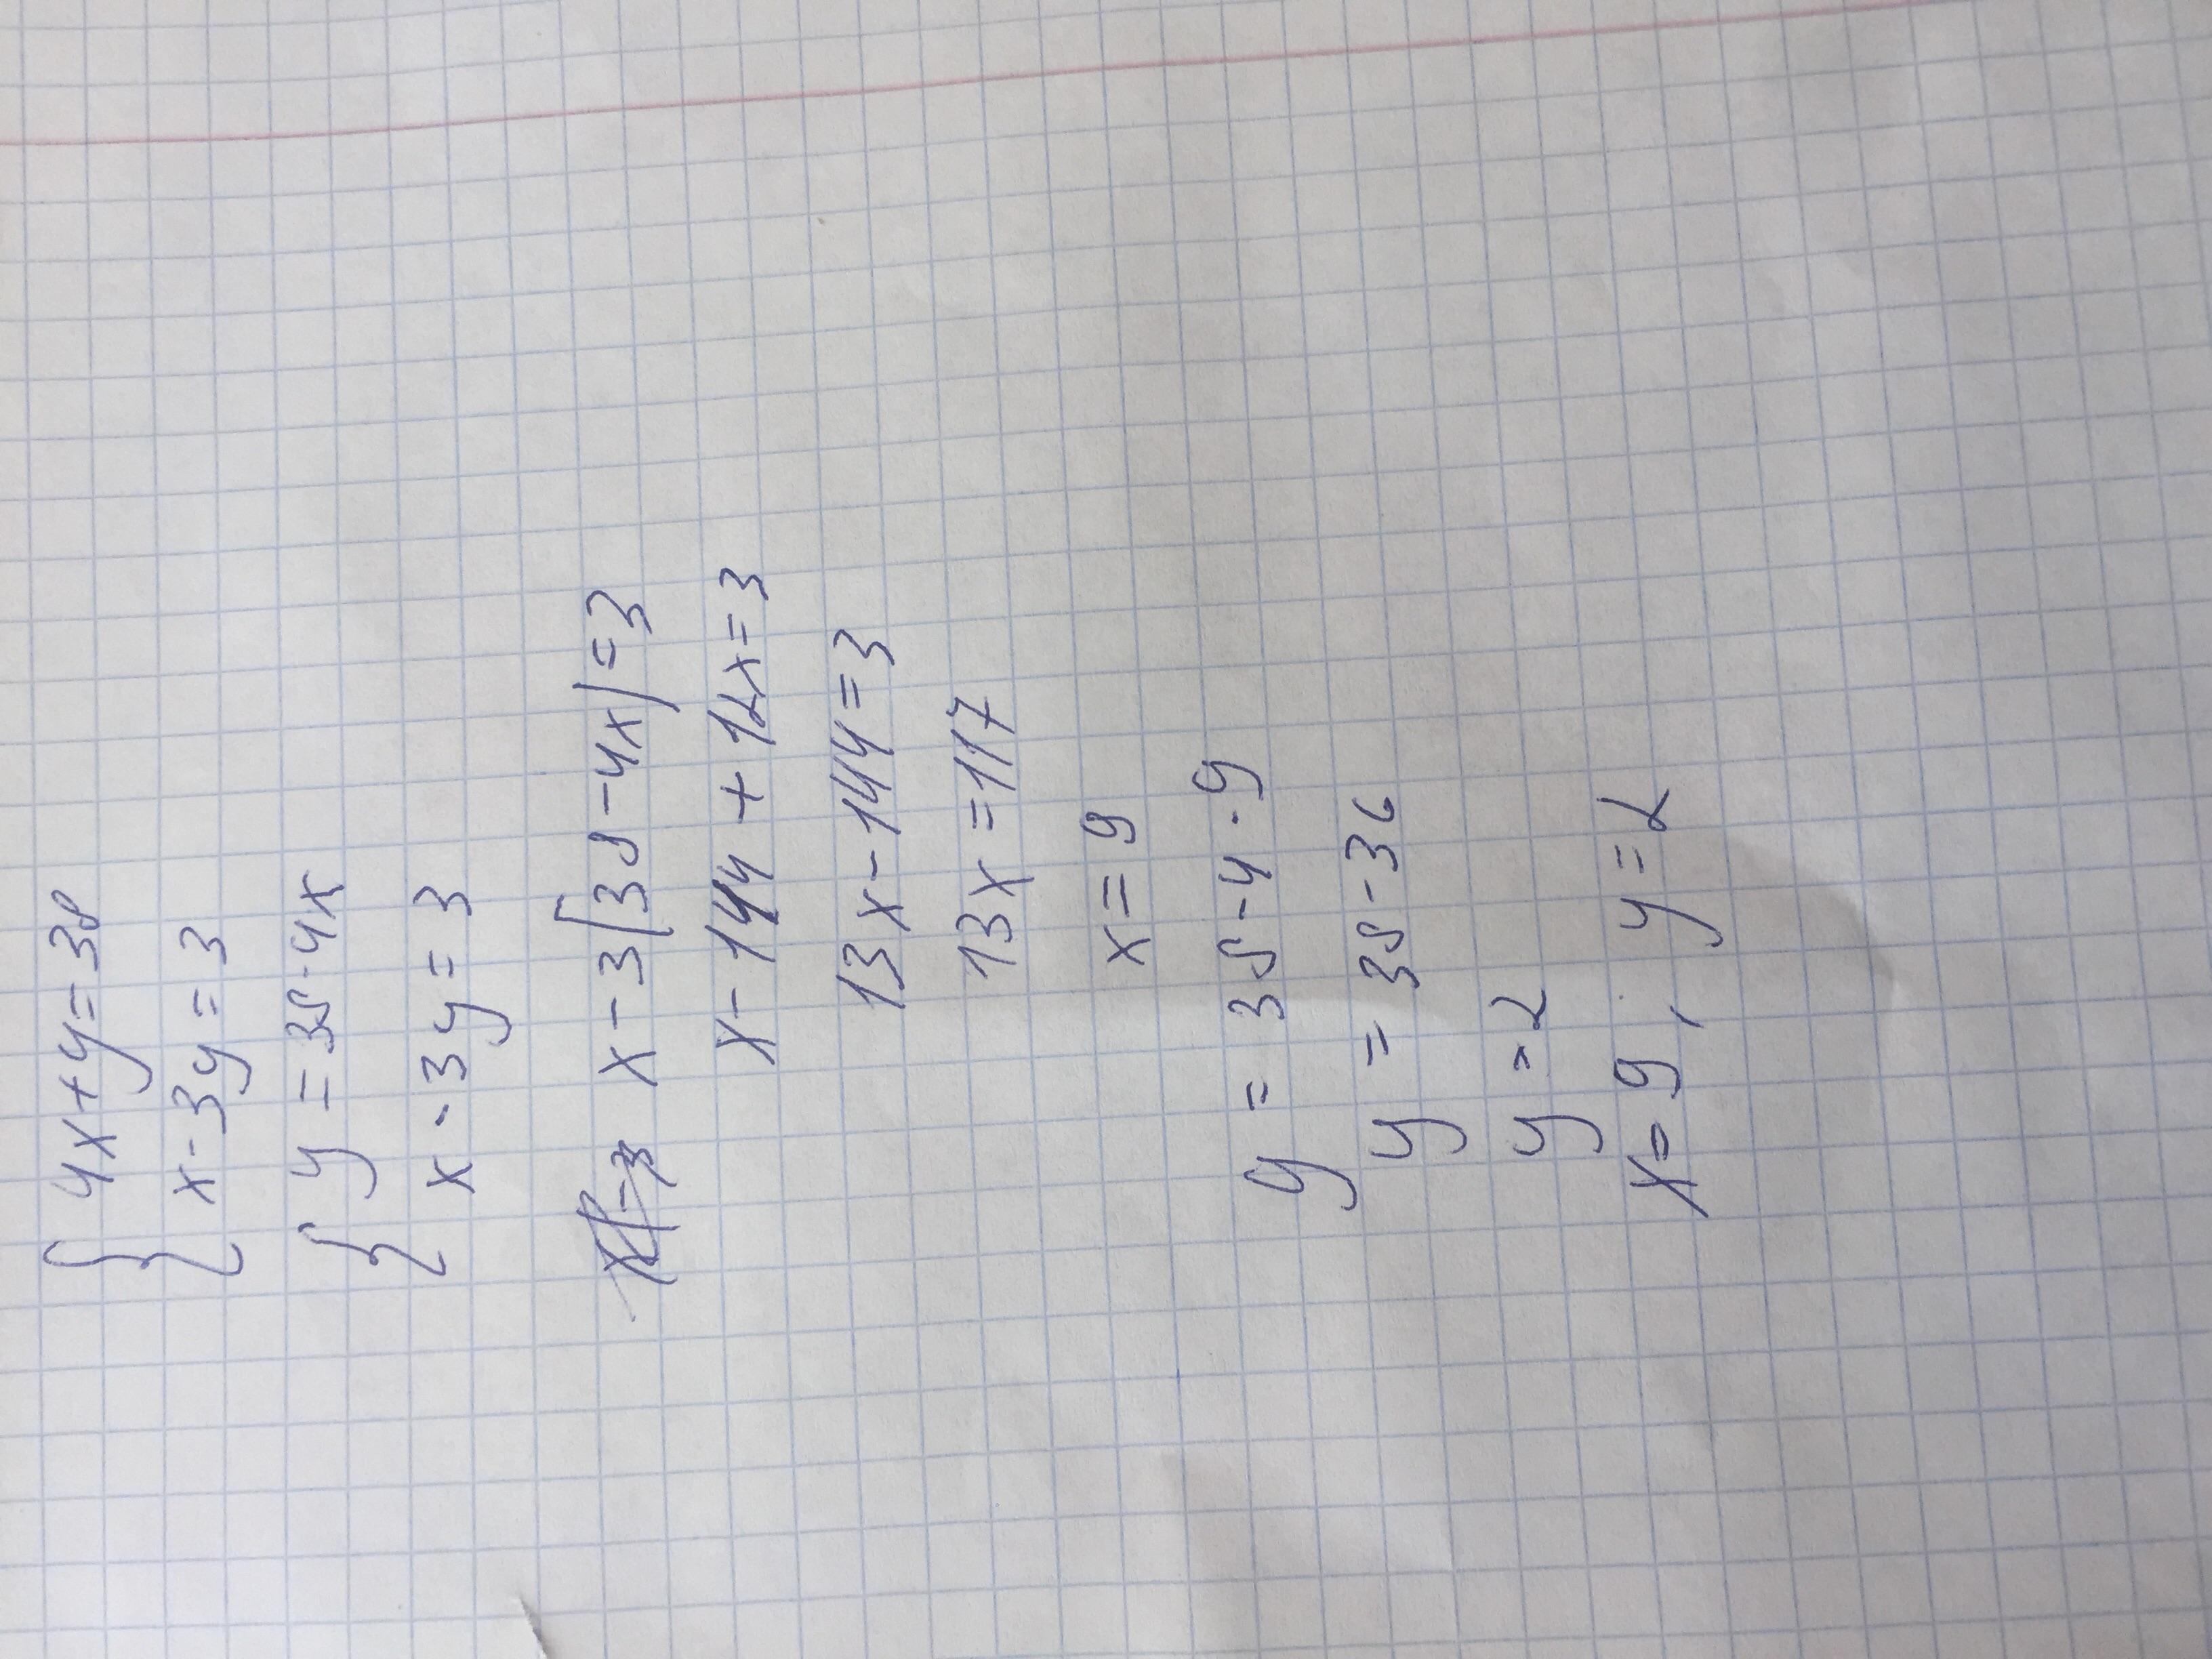 { 4x+y=38
x-3y=3
{ y=38-4x
x-3y=3
x-3(38-4x)=3
x-144+12x=3
13x-144=3
13x=117
x=9
y=38-4·9
y=38-36
y=2
x=9; y=2